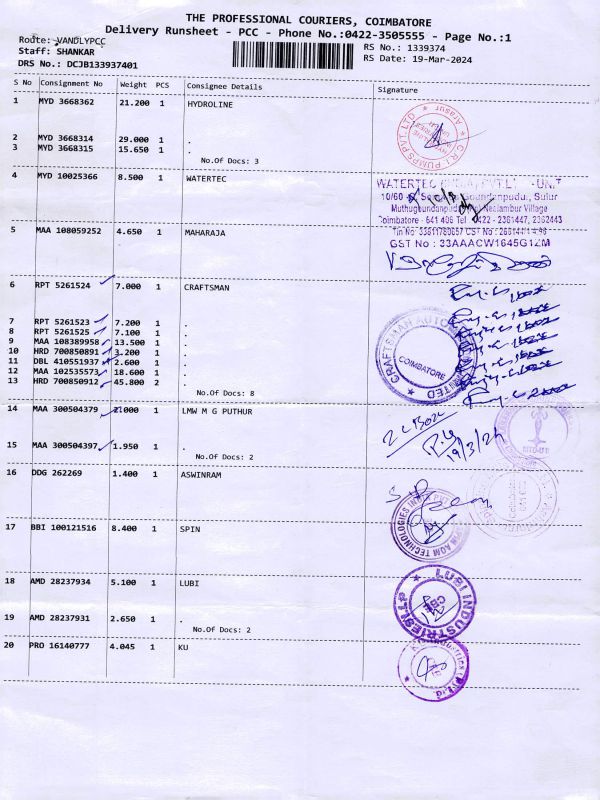 THE PROFESSIONAL COURIERS, COIMBATORE
Delivery Runsheet - PCC - Phone No.:0422-3505555 - Page No.:1
Route: VANDLYPCC
RS No.: 1339374
Staff: SHANKAR
RS Date: 19-Mar-2024
DRS No.: DCJB133937401
S No Consignment No Weight PCS Consignee Details Signature
1 MYD 3668362 21.200 1 HYDROLINE
C.R.I. PUMPS PVT. LTD
2 MYD 3668314 29.000 1 .
3 MYD 3668315 15.650 1 .
No.Of Docs: 3
4 MYD 10025366 8.500 1 WATERTEC
WATERTEC
UNIT
Sulur
Muthugoundanpudur
Neelambur Village
Coimbatore - 641 406 Tel 0422 - 2361447, 2362443
GST No : 33AAACW1645G1ZM
5 MAA 108059252 4.650 1 MAHARAJA
6 RPT 5261524 7.000 1 CRAFTSMAN
7 RPT 5261523 7.200 1 .
8 RPT 5261525 7.100 1 .
9 MAA 108389958 13.500 1 .
10 HRD 700850891 3.200 1 .
11 DBL 410551937 2.600 1 .
12 MAA 102535573 18.600 1 .
13 HRD 700850912 45.800 2 .
No.Of Docs: 8
CRAFTSMAN AUTOMATION LIMITED
COIMBATORE
14 MAA 300504379 2.000 1 LMW M G PUTHUR
19/3/24
15 MAA 300504397 1.950 1 .
No.Of Docs: 2
16 DDG 262269 1.400 1 ASWINRAM
17 BBI 100121516 8.400 1 SPIN
18 AMD 28237934 5.100 1 LUBI
LUBI INDUSTRIES LLP
CBE
19 AMD 28237931 2.650 1 .
No.Of Docs: 2
20 PRO 16140777 4.045 1 KU